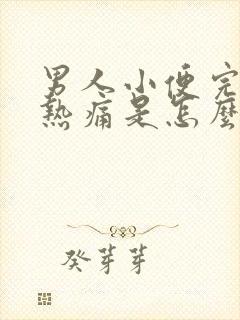 男人小便完
熱痛是怎麼
癸芽芽